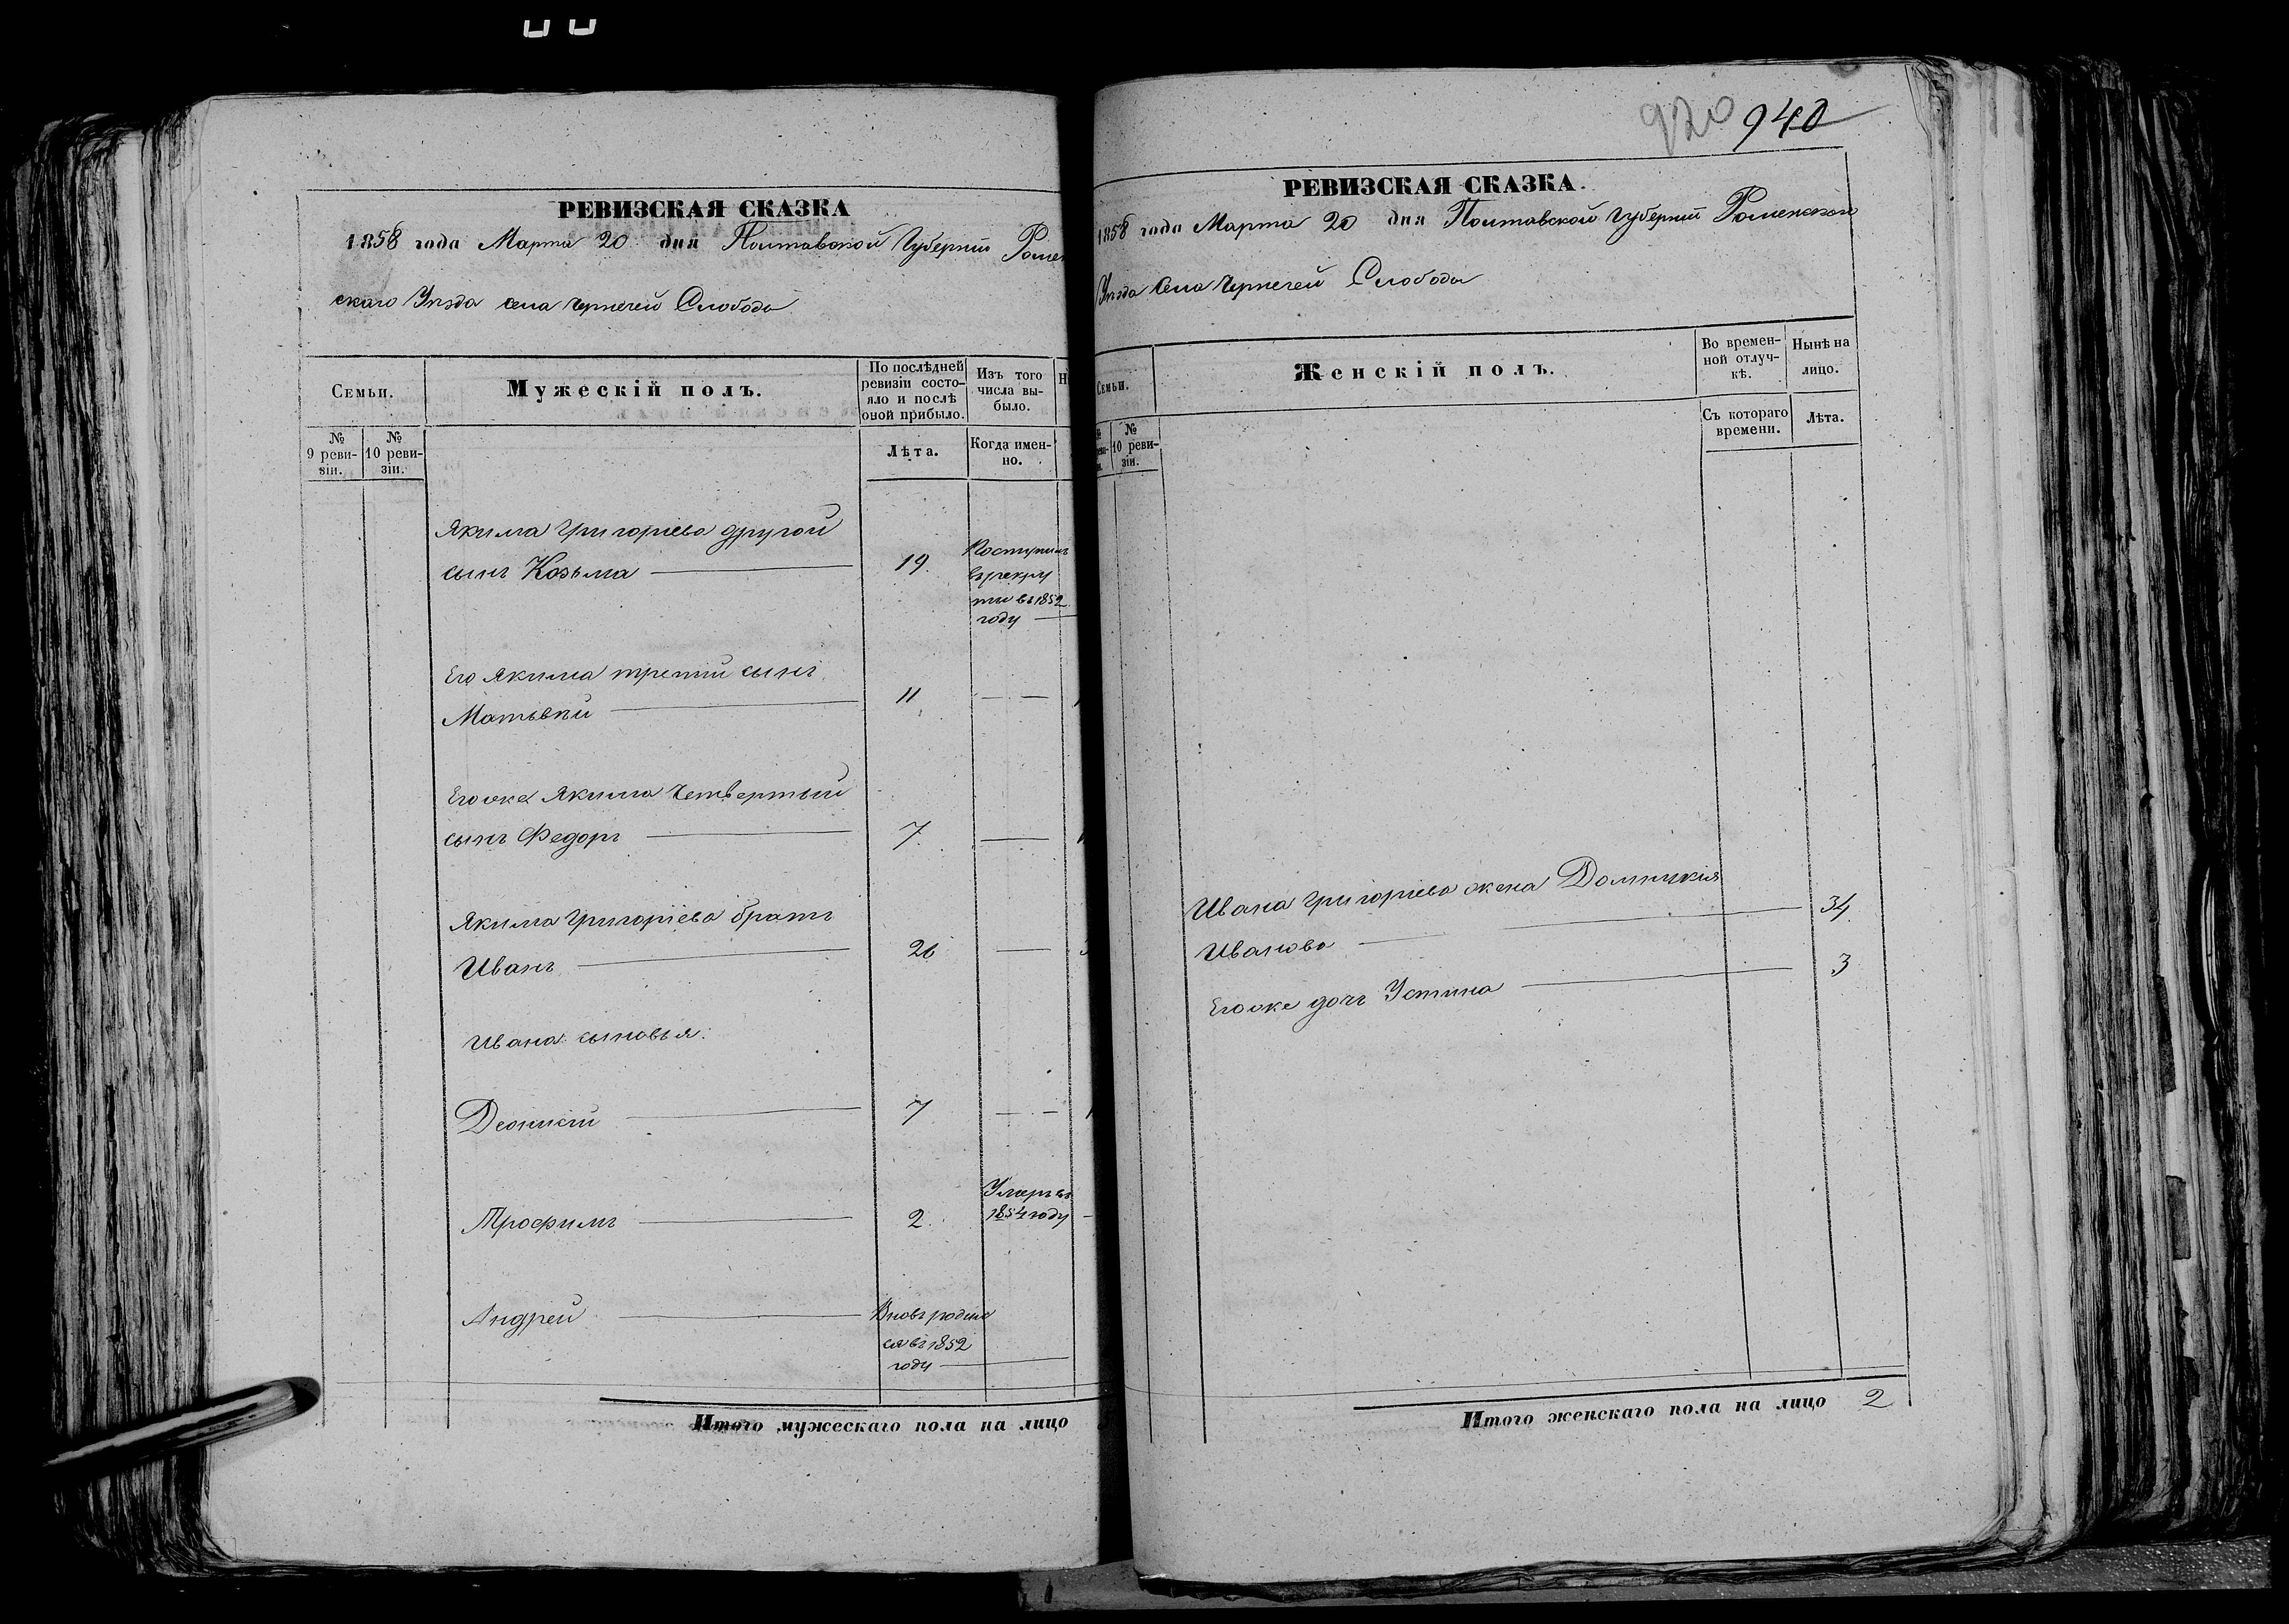 920 940
РЕВИЗСКАЯ СКАЗКА
1858 года Марта 20 дня Полтавской Губернiи Ромен
скаго Уѣзда села Чернечей Слободы
Семьи.
Мужескiй полъ.
По послѣдней
ревизiи состо-
яло и послѣ
оной прибыло.
Изъ того
числа вы-
было.
Н
№
9 реви-
зiи.
№
10 реви-
зiи.
Лѣта.
Когда имен-
но.
Якима Григорiева другой
сынъ Козьма 19
Поступилъ
въ рекру
ты въ 1852
году
Его Якима третiй сынъ
Матвѣй 11
Его же Якима Четвертый
сынъ Федоръ 7
Якима Григорiева братъ
Иванъ 26
Ивана сыновья:
Деонисiй 7
Трофимъ 2
Умеръ въ
1854 году
Андрей
Вновь родил
ся въ 1852
году
Итого мужескаго пола на лицо
РЕВИЗСКАЯ СКАЗКА.
1858 года Марта 20 дня Полтавской Губернiи Роменскаго
Уѣзда Села Чернечей Слободы
Семьи.
Женскiй полъ.
Во времен-
ной отлуч-
кѣ.
Нынѣ на
лицо.
№
10 реви-
зiи.
Съ котораго
времени.
Лѣта.
Ивана Григорiева жена Домникiя
Иванова 34
Его же дочь Устина 3
Итого женскаго пола на лицо 2